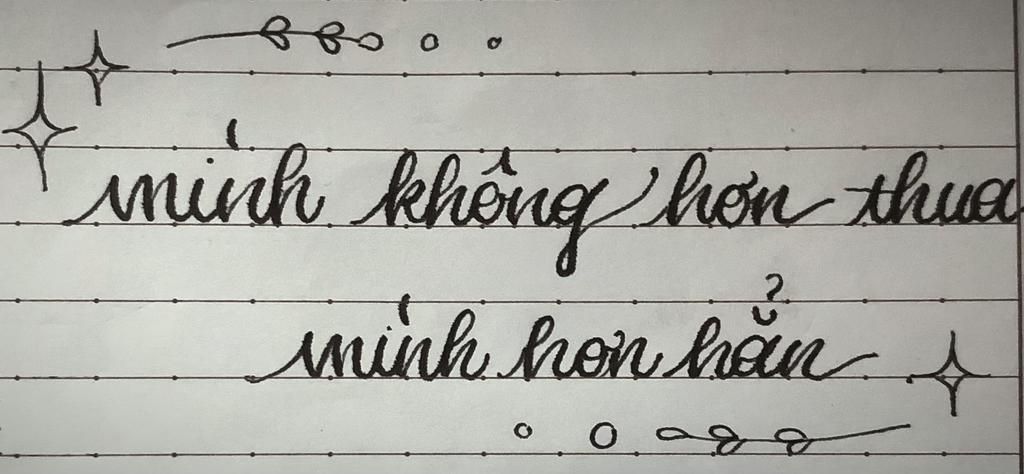 mình không hơn thua
mình hơn hẳn